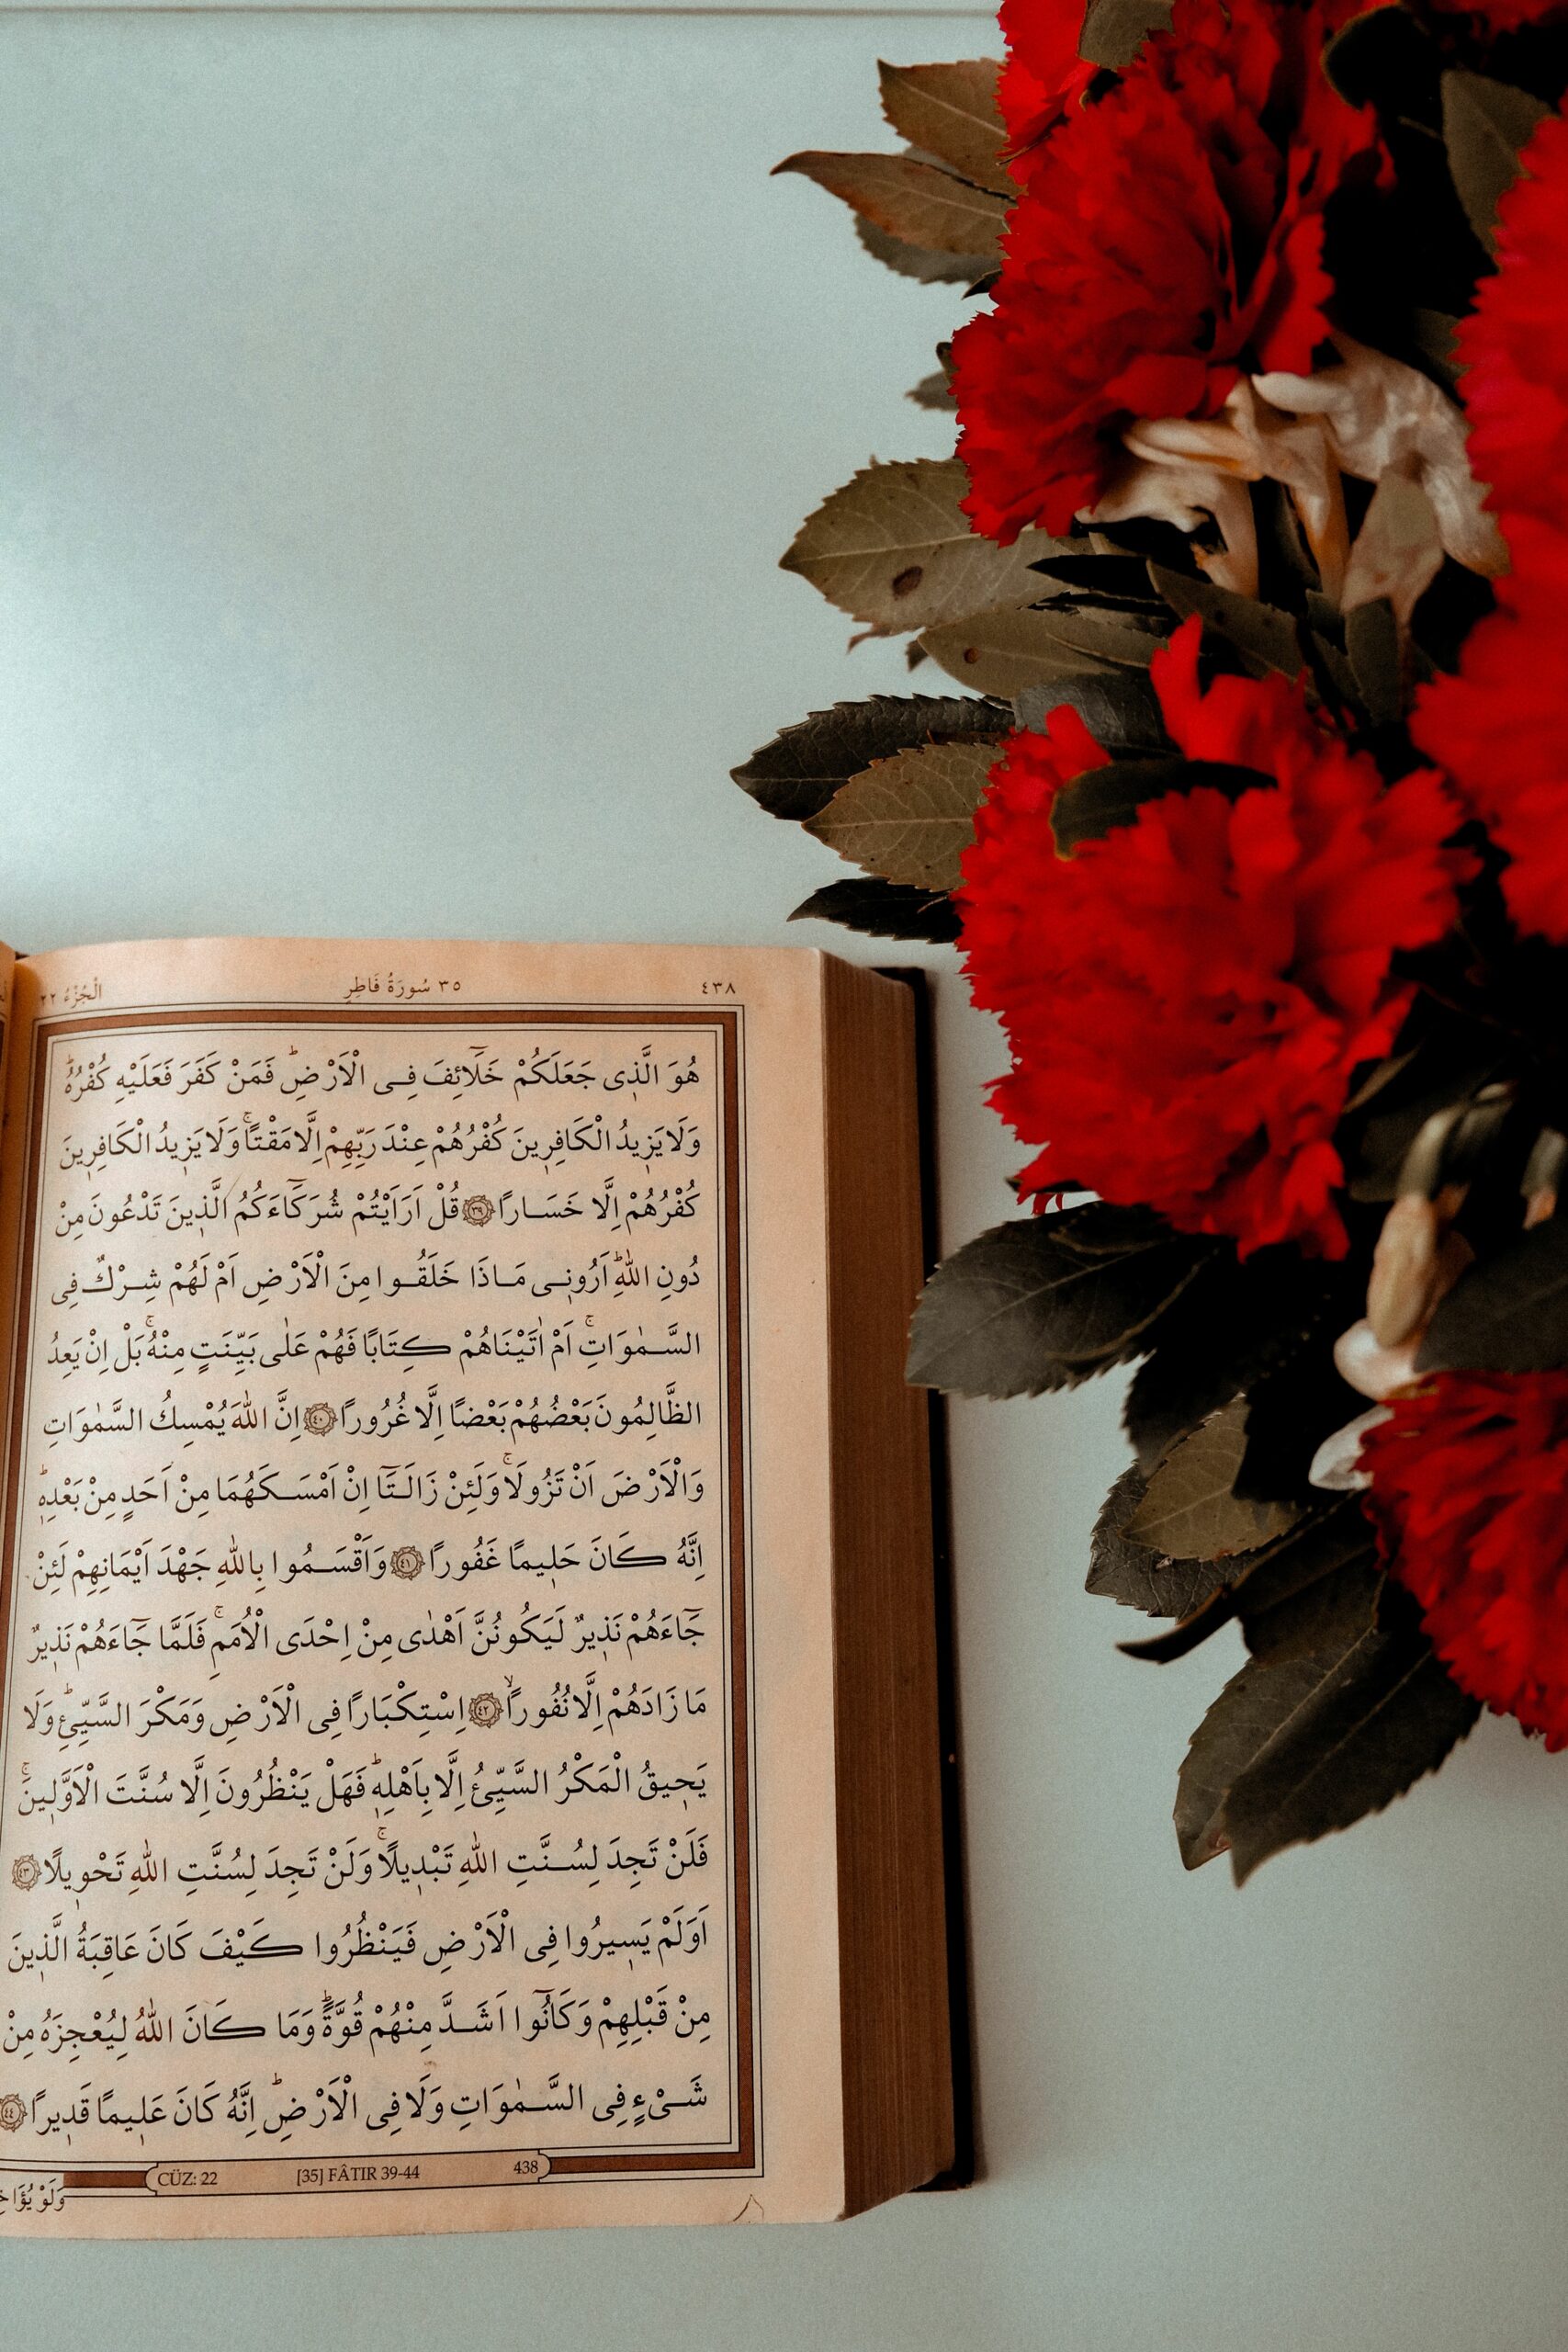 ٤٣٨ ٣٥ سُورَةُ فَاطِرٍ الْجُزْءُ ٢٢
هُوَ الَّذ۪ى جَعَلَكُمْ خَلَٓائِفَ فِى الْاَرْضِۜ فَمَنْ كَفَرَ فَعَلَيْهِ كُفْرُهُۜ
وَلَا يَز۪يدُ الْكَافِر۪ينَ كُفْرُهُمْ عِنْدَ رَبِّهِمْ اِلَّا مَقْتًاۚ وَلَا يَز۪يدُ الْكَافِر۪ينَ
كُفْرُهُمْ اِلَّا خَسَارًا ﴿٣٩﴾ قُلْ اَرَاَيْتُمْ شُرَكَٓاءَكُمُ الَّذ۪ينَ تَدْعُونَ مِنْ
دُونِ اللّٰهِۜ اَرُون۪ى مَاذَا خَلَقُوا مِنَ الْاَرْضِ اَمْ لَهُمْ شِرْكٌ فِى
السَّمٰوَاتِۚ اَمْ اٰتَيْنَاهُمْ كِتَابًا فَهُمْ عَلٰى بَيِّنَتٍ مِنْهُۚ بَلْ اِنْ يَعِدُ
الظَّالِمُونَ بَعْضُهُمْ بَعْضًا اِلَّا غُرُورًا ﴿٤٠﴾ اِنَّ اللّٰهَ يُمْسِكُ السَّمٰوَاتِ
وَالْاَرْضَ اَنْ تَزُولَاۚ وَلَئِنْ زَالَتَٓا اِنْ اَمْسَكَهُمَا مِنْ اَحَدٍ مِنْ بَعْدِه۪ۜ
اِنَّهُ كَانَ حَل۪يمًا غَفُورًا ﴿٤١﴾ وَاَقْسَمُوا بِاللّٰهِ جَهْدَ اَيْمَانِهِمْ لَئِنْ
جَٓاءَهُمْ نَذ۪يرٌ لَيَكُونُنَّ اَهْدٰى مِنْ اِحْدَى الْاُمَمِۚ فَلَمَّا جَٓاءَهُمْ نَذ۪يرٌ
مَا زَادَهُمْ اِلَّا نُفُورًاۙ ﴿٤٢﴾ اِسْتِكْبَارًا فِى الْاَرْضِ وَمَكْرَ السَّيِّئِۜ وَلَا
يَح۪يقُ الْمَكْرُ السَّيِّئُ اِلَّا بِاَهْلِه۪ۜ فَهَلْ يَنْظُرُونَ اِلَّا سُنَّتَ الْاَوَّل۪ينَۚ
فَلَنْ تَجِدَ لِسُنَّتِ اللّٰهِ تَبْد۪يلًاۚ وَلَنْ تَجِدَ لِسُنَّتِ اللّٰهِ تَحْو۪يلًا ﴿٤٣﴾
اَوَلَمْ يَس۪يرُوا فِى الْاَرْضِ فَيَنْظُرُوا كَيْفَ كَانَ عَاقِبَةُ الَّذ۪ينَ
مِنْ قَبْلِهِمْ وَكَانُٓوا اَشَدَّ مِنْهُمْ قُوَّةًۜ وَمَا كَانَ اللّٰهُ لِيُعْجِزَهُ مِنْ
شَىْءٍ فِى السَّمٰوَاتِ وَلَا فِى الْاَرْضِۜ اِنَّهُ كَانَ عَل۪يمًا قَد۪يرًا ﴿٤٤﴾
CÜZ: 22 [35] FÂTIR 39-44 438
وَلَوْ